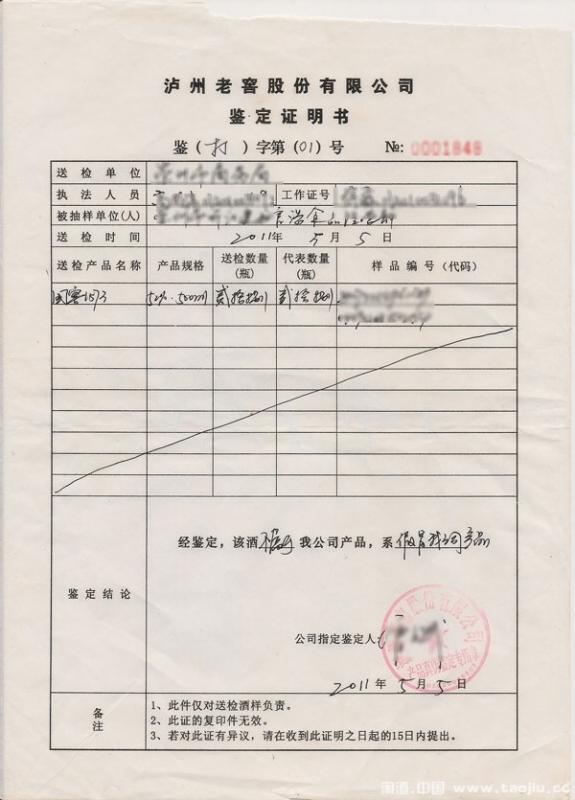 泸州老窖股份有限公司
鉴定证明书
鉴（打）字第（01）号 №: 0001848
送检单位
执法人员 工作证号
被抽样单位(人)
送检时间 2011年 5月 5日
送检产品名称 产品规格 送检数量(瓶) 代表数量(瓶) 样品编号（代码）
国窖1573 50% 500ml 贰拾捌 贰拾捌
经鉴定，该酒 不属于 我公司产品，系 假冒我公司产品
鉴定结论
公司指定鉴定人：
2011年 5月 5日
备注
1、此件仅对送检酒样负责。
2、此证的复印件无效。
3、若对此证有异议，请在收到此证明之日起的15日内提出。
淘酒.中国 www.taojiu.cc